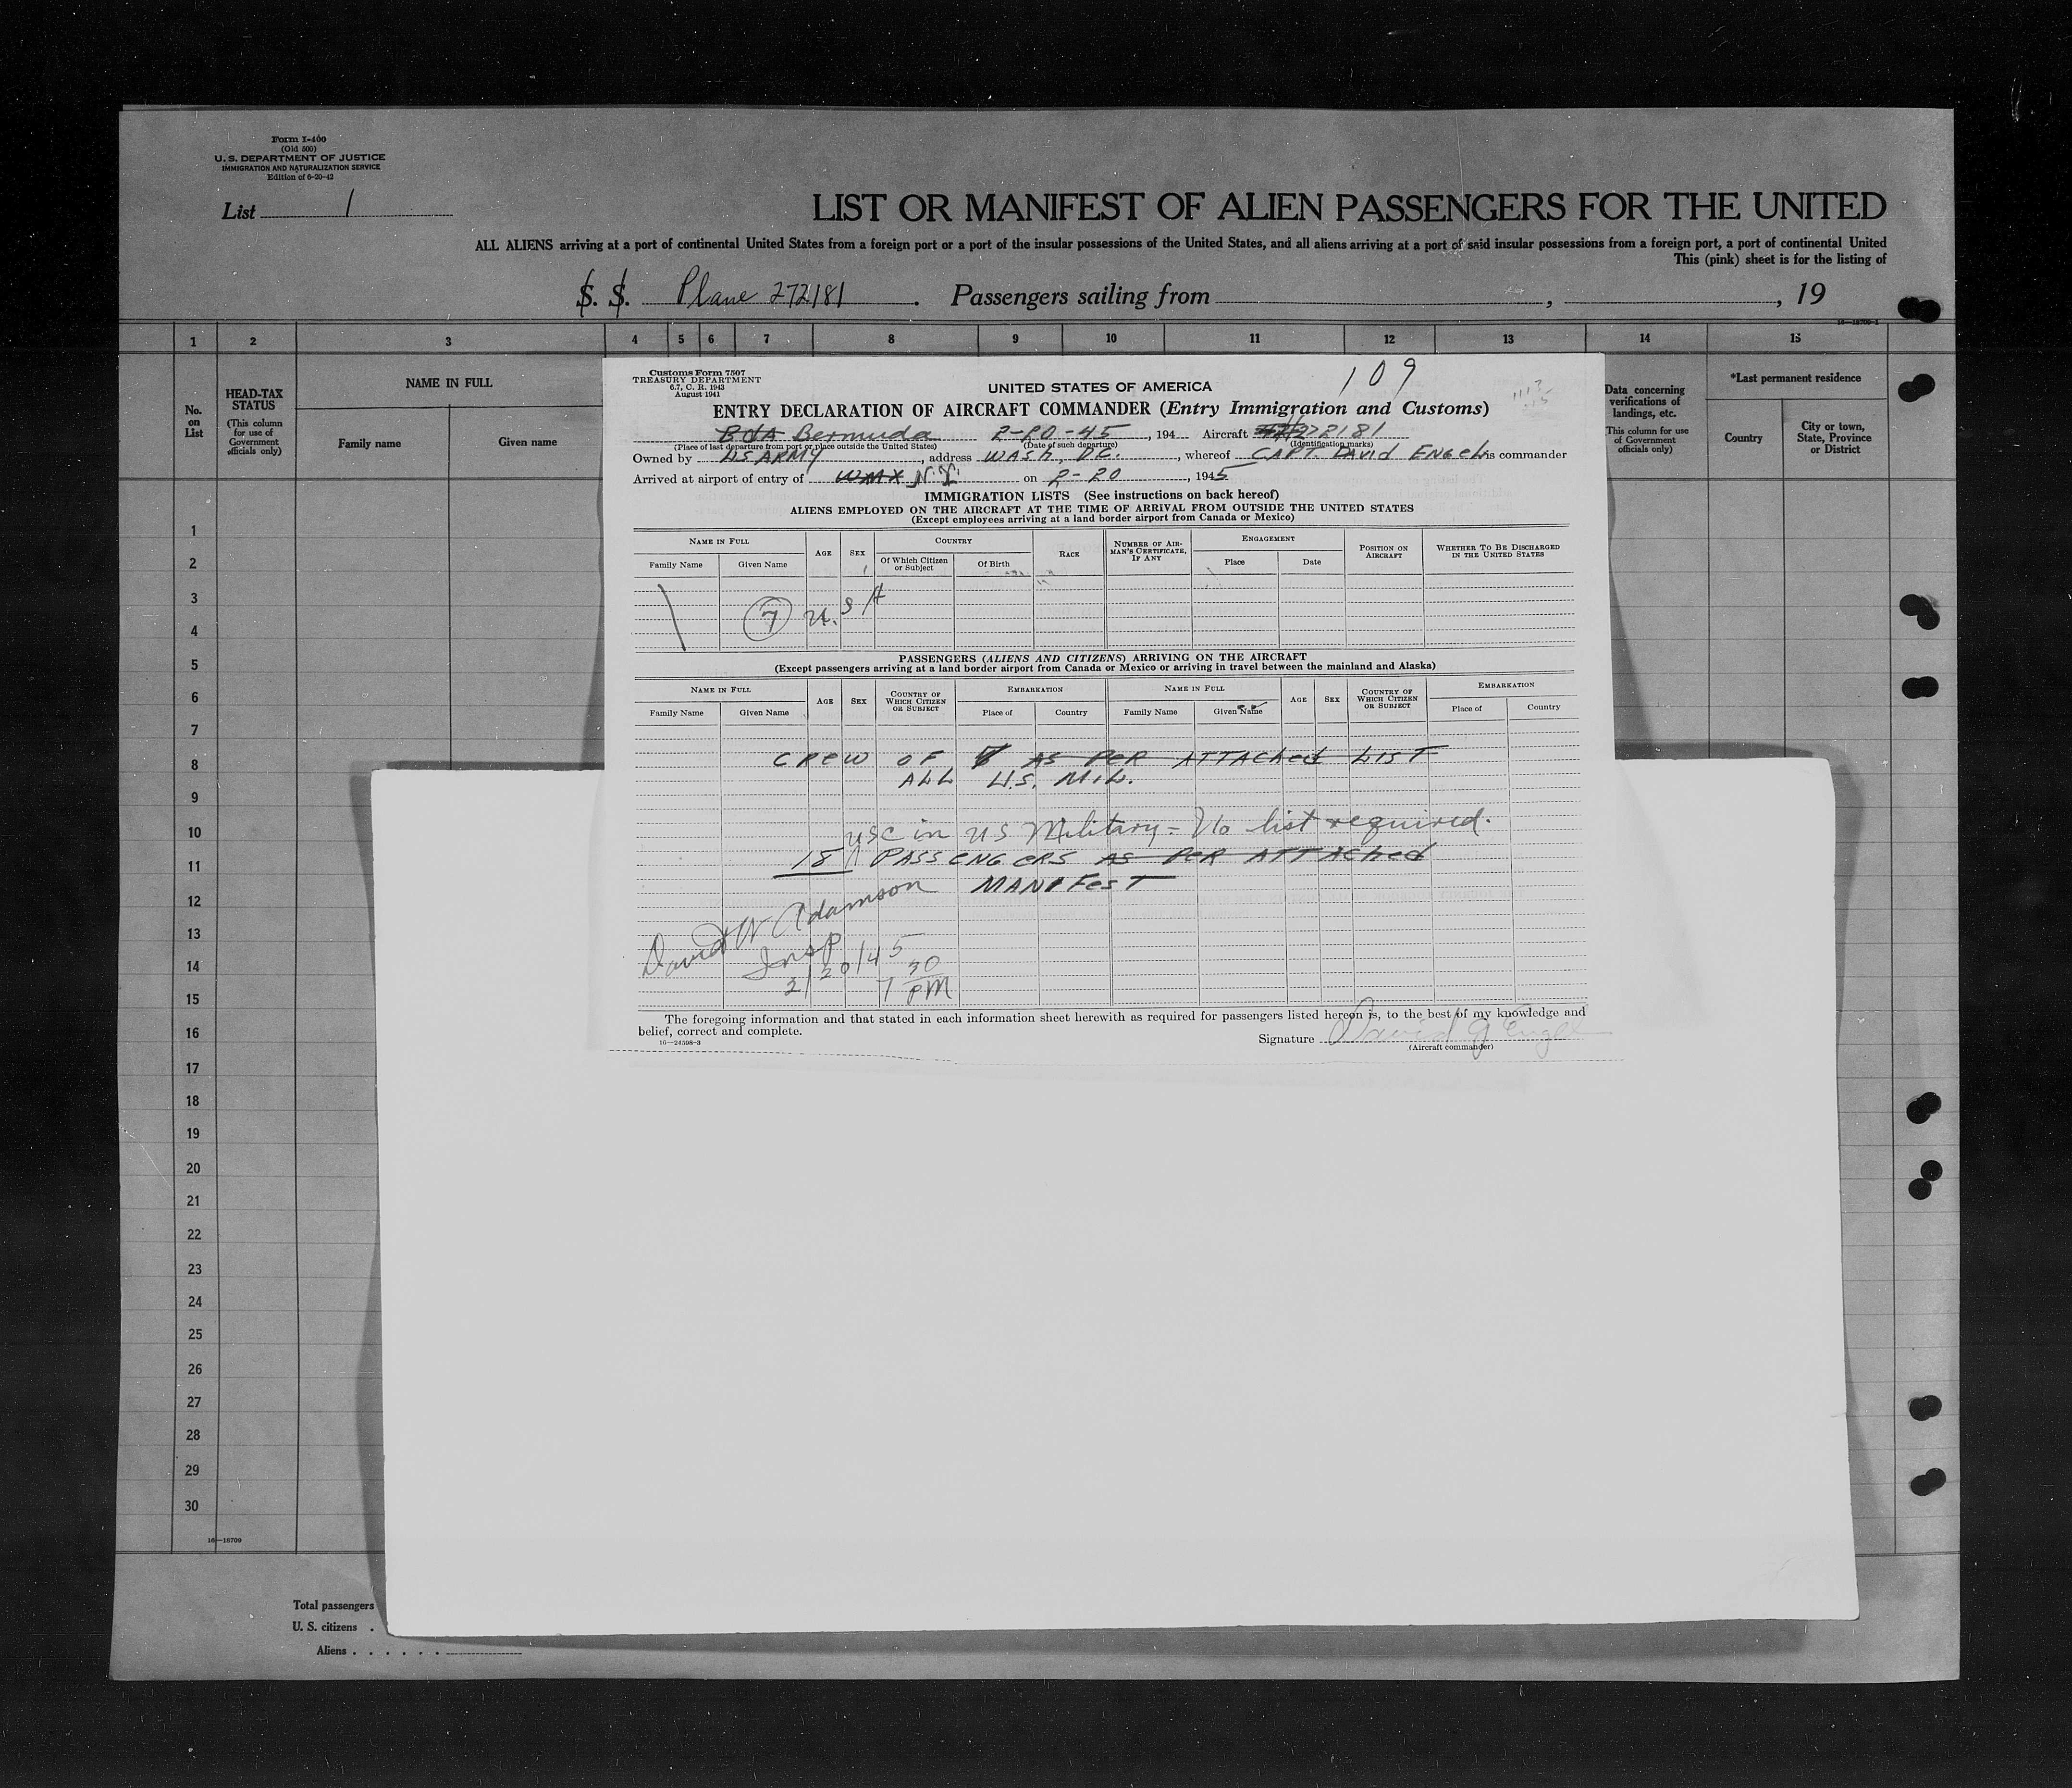 Form I-400
(Old 500)
U. S. DEPARTMENT OF JUSTICE
IMMIGRATION AND NATURALIZATION SERVICE
Edition of 6-20-42
List 1
LIST OR MANIFEST OF ALIEN PASSENGERS FOR THE UNITED
ALL ALIENS arriving at a port of continental United States from a foreign port or a port of the insular possessions of the United States, and all aliens arriving at a port of said insular possessions from a foreign port, a port of continental United
This (pink) sheet is for the listing of
S. S. Plane 272181. Passengers sailing from , , 19
16—18709-1
1 2 3 4 5 6 7 8 9 10 11 12 13 14 15
No. on List
HEAD-TAX STATUS
(This column for use of Government officials only)
NAME IN FULL
Family name Given name
Data concerning verifications of landings, etc.
(This column for use of Government officials only)
*Last permanent residence
Country
City or town, State, Province or District
Customs Form 7507
TREASURY DEPARTMENT
6.7, C. R. 1943
August 1941
109
UNITED STATES OF AMERICA
ENTRY DECLARATION OF AIRCRAFT COMMANDER (Entry Immigration and Customs)
BdA Bermuda 2-20-45, 194 Aircraft 272181
(Place of last departure from port or place outside the United States) (Date of such departure) (Identification marks)
Owned by US ARMY, address WASH, DC., whereof CAPT. DAVID ENGEL is commander
Arrived at airport of entry of N.Y. on 2-20, 1945
IMMIGRATION LISTS (See instructions on back hereof)
ALIENS EMPLOYED ON THE AIRCRAFT AT THE TIME OF ARRIVAL FROM OUTSIDE THE UNITED STATES
(Except employees arriving at a land border airport from Canada or Mexico)
NAME IN FULL AGE SEX COUNTRY RACE NUMBER OF AIRMAN'S CERTIFICATE, IF ANY ENGAGEMENT POSITION ON AIRCRAFT WHETHER TO BE DISCHARGED IN THE UNITED STATES
Family Name Given Name Of Which Citizen or Subject Of Birth Place Date
7 U. S A
PASSENGERS (ALIENS AND CITIZENS) ARRIVING ON THE AIRCRAFT
(Except passengers arriving at a land border airport from Canada or Mexico or arriving in travel between the mainland and Alaska)
NAME IN FULL AGE SEX COUNTRY OF WHICH CITIZEN OR SUBJECT EMBARKATION NAME IN FULL AGE SEX COUNTRY OF WHICH CITIZEN OR SUBJECT EMBARKATION
Family Name Given Name Place of Country Family Name Given Name Place of Country
CREW OF 7 AS PER ATTACHED LIST
ALL U.S. MIL.
USC in US Military = No list required.
18 PASSENGERS AS PER ATTACHED
MANIFEST
David W Adamson
Insp
2/20/45
7 30 PM
The foregoing information and that stated in each information sheet herewith as required for passengers listed hereon is, to the best of my knowledge and
belief, correct and complete.
16—24598-3
Signature David G Engel
(Aircraft commander)
1
2
3
4
5
6
7
8
9
10
11
12
13
14
15
16
17
18
19
20
21
22
23
24
25
26
27
28
29
30
16—18709
Total passengers
U. S. citizens .
Aliens . . . . . .